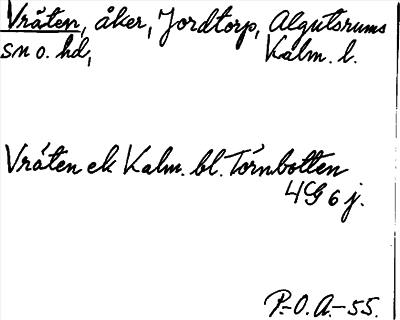 Vråten, åker, Jordtorp, Algutsrums
sn o. hd, Kalm. l.
Vråten ek Kalm. bl. Törnbotten
4G 6 j.
P.-O. A.-55.